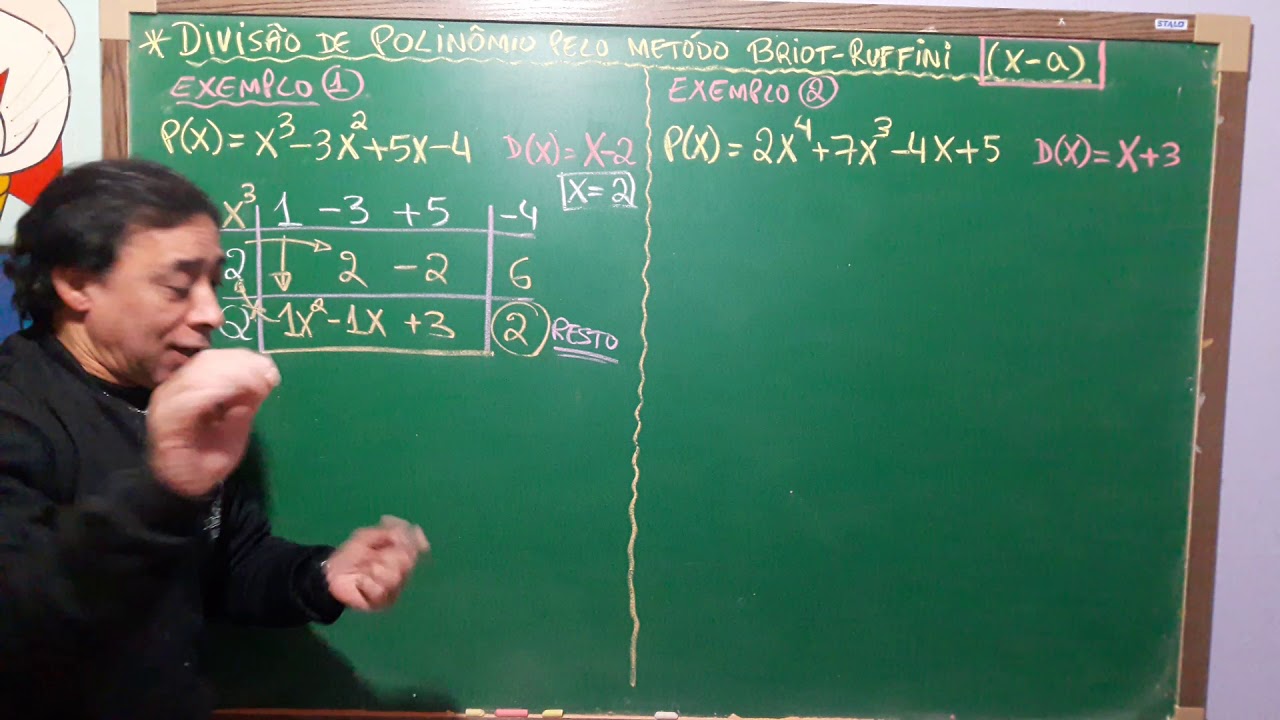 * DIVISÃO DE POLINÔMIO PELO METÓDO BRIOT-RUFFINI (x-a)
STALO
EXEMPLO 1
P(X)= X³-3X²+5X-4 D(X)= X-2
X=2
X³ 1 -3 +5 -4
2 2 -2 6
Q 1X²-1X +3 2 RESTO
EXEMPLO 2
P(X)= 2X⁴+7X³-4X+5 D(X)= X+3